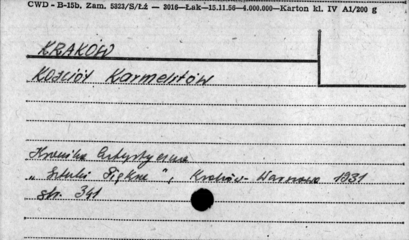 CWD - B-15b, Zam. 5323/S/Łź — 2016—Łak—15.11.56—4.000.000—Karton kl. IV A1/200 g
KRAKÓW
Kościół Karmelitów
Kronika Artystyczna
„Sztuki Piękne", Kraków-Warszawa 1931
str. 341